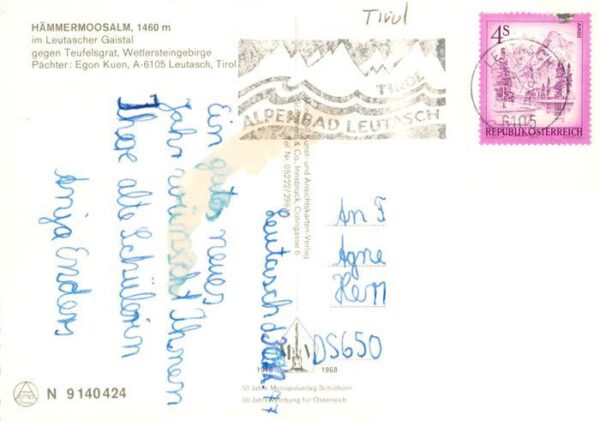 HÄMMERMOOSALM, 1460 m
im Leutascher Gaistal
gegen Teufelsgrat, Wettersteingebirge
Pächter: Egon Kuen, A-6105 Leutasch, Tirol
Tirol
TIROL
ALPENBAD LEUTASCH
4S
REPUBLIK ÖSTERREICH
LEUTASCH
6105
Leutasch
Ein gutes neues
Jahr wünscht Ihnen
Ihre alte Schülerin
Anja Enders
Kunst- und Ansichtskarten-Verlag
& Co., Innsbruck,
Tel. Nr. 05222/
An F
Agne
Herr
DS650
1968
50 Jahre Monopolverlag Schöllhorn
50 Jahre Werbung für Österreich
N 9140424